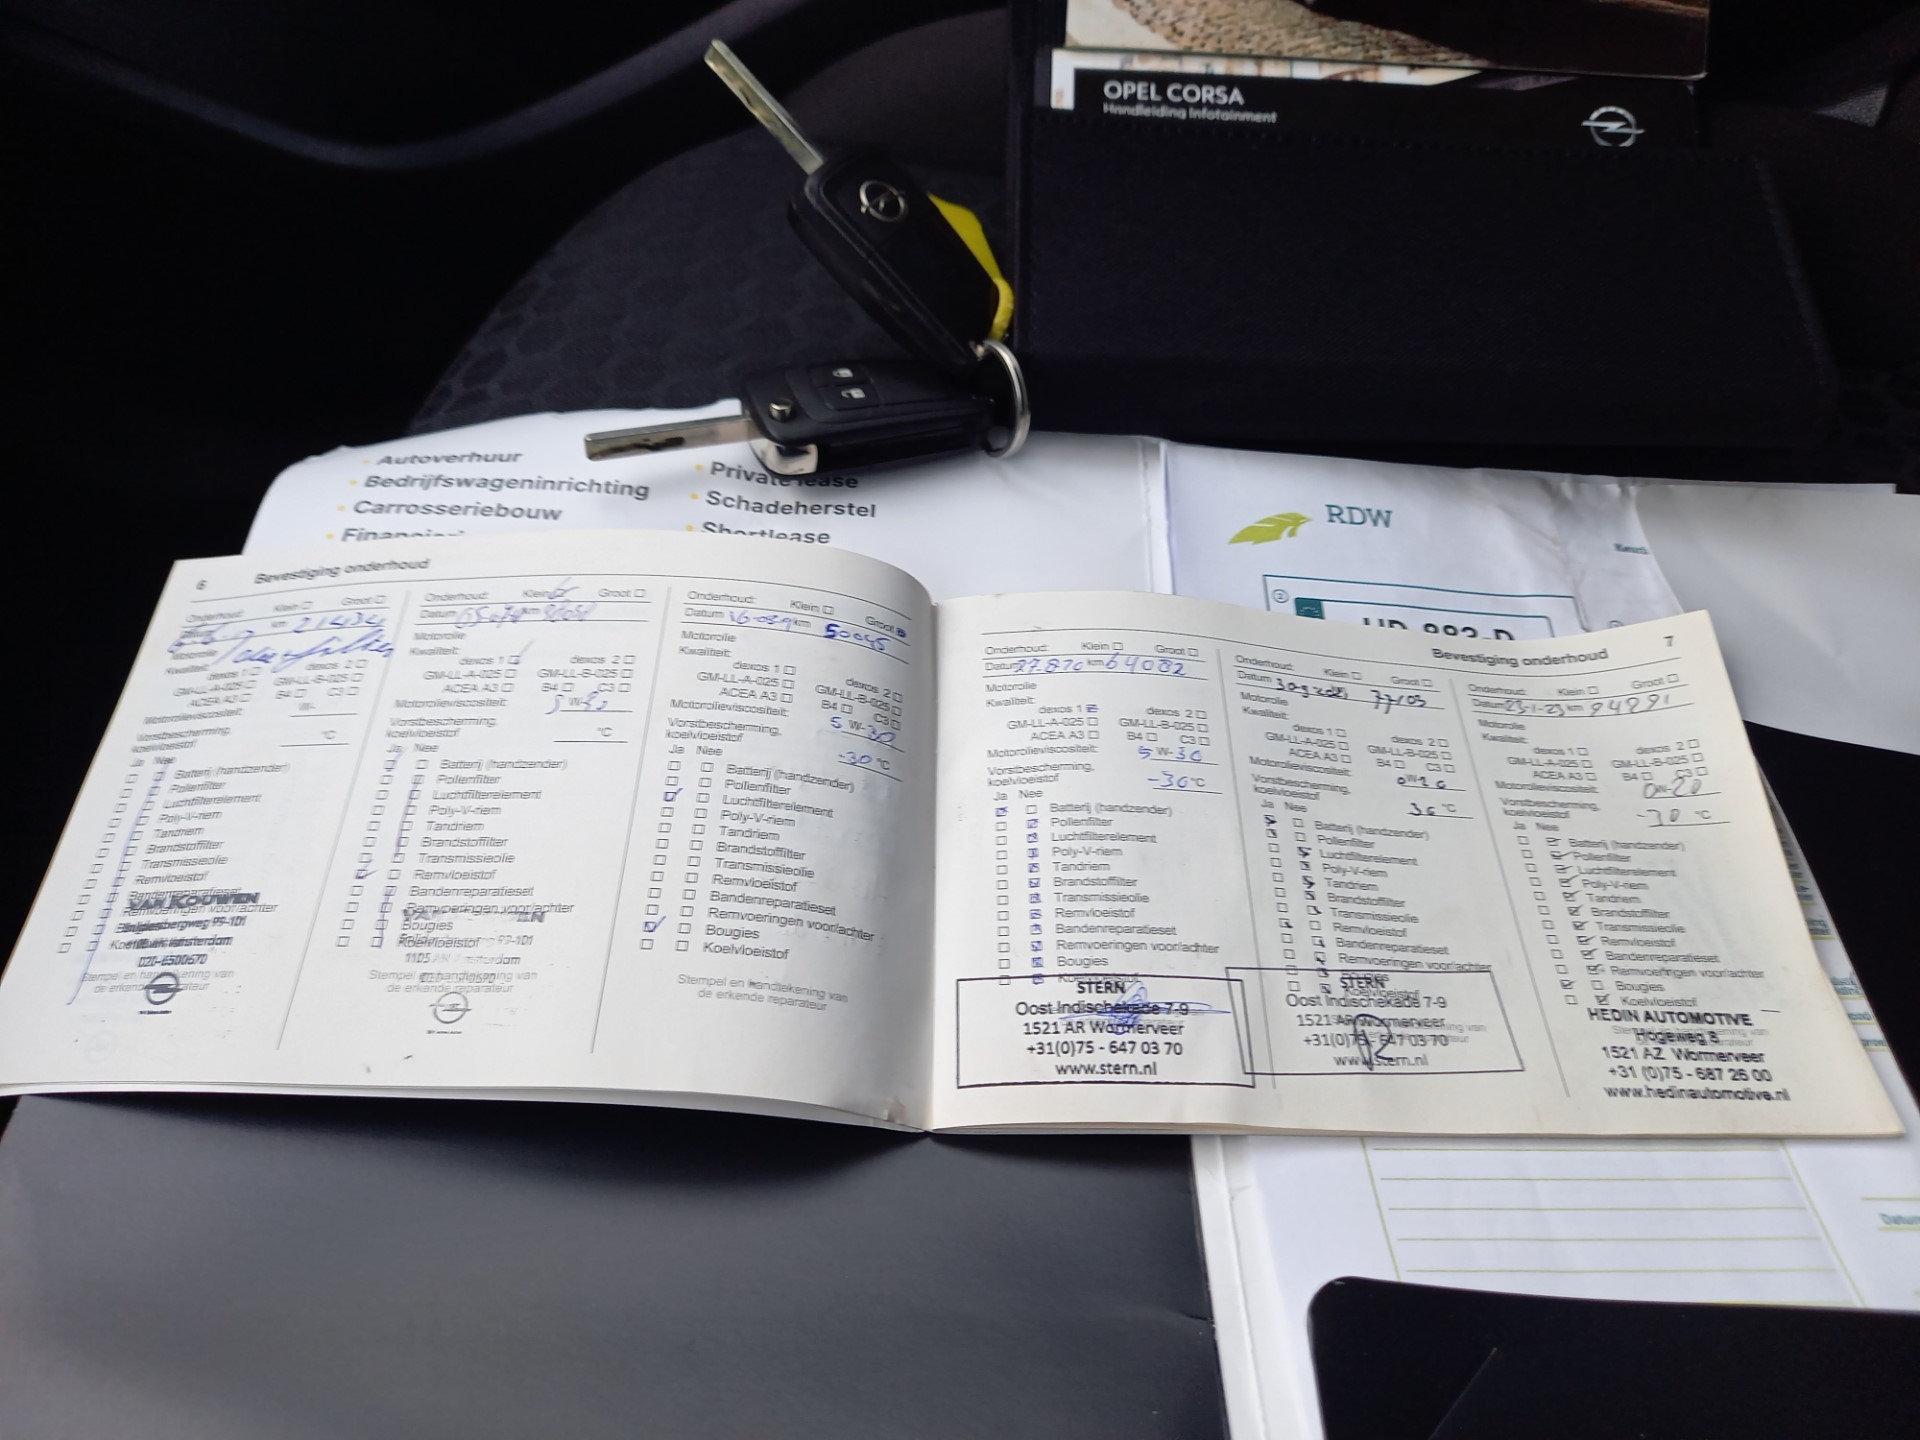 OPEL CORSA
Handleiding Infotainment
Autoverhuur
Bedrijfswageninrichting
Carrosseriebouw
Private lease
Schadeherstel
Shortlease
RDW
6 Bevestiging onderhoud
Onderhoud: Klein Groot
km 21434
Motorolie
Kwaliteit: dexos 2
GM-LL-A-025 GM-LL-B-025
ACEA A3 B4 C3
Motorolieviscositeit: W-
Vorstbescherming,
koelvloeistof °C
Ja Nee
Batterij (handzender)
Pollenfilter
Luchtfilterelement
Poly-V-riem
Tandriem
Brandstoffilter
Transmissieolie
Remvloeistof
Bandenreparatieset
Remvoeringen voor/achter
VAN KOUWEN
020-6500670
Stempel en handtekening van
de erkende reparateur
Onderhoud: Klein Groot
Datum km
Motorolie
Kwaliteit:
dexos 1 dexos 2
GM-LL-A-025 GM-LL-B-025
ACEA A3 B4 C3
Motorolieviscositeit: 5 W-30
Vorstbescherming,
koelvloeistof °C
Ja Nee
Batterij (handzender)
Pollenfilter
Luchtfilterelement
Poly-V-riem
Tandriem
Brandstoffilter
Transmissieolie
Remvloeistof
Bandenreparatieset
Remvoeringen voor/achter
Bougies
Koelvloeistof
Stempel en handtekening van
de erkende reparateur
Onderhoud: Klein Groot
Datum km 50045
Motorolie
Kwaliteit:
dexos 1 dexos 2
GM-LL-A-025 GM-LL-B-025
ACEA A3 B4 C3
Motorolieviscositeit: 5 W-30
Vorstbescherming,
koelvloeistof -30 °C
Ja Nee
Batterij (handzender)
Pollenfilter
Luchtfilterelement
Poly-V-riem
Tandriem
Brandstoffilter
Transmissieolie
Remvloeistof
Bandenreparatieset
Remvoeringen voor/achter
Bougies
Koelvloeistof
Stempel en handtekening van
de erkende reparateur
Bevestiging onderhoud 7
Onderhoud: Klein Groot
Datum km 64082
Motorolie
Kwaliteit:
dexos 1 dexos 2
GM-LL-A-025 GM-LL-B-025
ACEA A3 B4 C3
Motorolieviscositeit: 5 W-30
Vorstbescherming,
koelvloeistof -36 °C
Ja Nee
Batterij (handzender)
Pollenfilter
Luchtfilterelement
Poly-V-riem
Tandriem
Brandstoffilter
Transmissieolie
Remvloeistof
Bandenreparatieset
Remvoeringen voor/achter
Bougies
Koelvloeistof
STERN
Oost Indischekade 7-9
1521 AR Wormerveer
+31(0)75 - 647 03 70
www.stern.nl
Onderhoud: Klein Groot
Datum km 77103
Motorolie
Kwaliteit:
dexos 1 dexos 2
GM-LL-A-025 GM-LL-B-025
ACEA A3 B4 C3
Motorolieviscositeit: 0 W-20
Vorstbescherming,
koelvloeistof 36 °C
Ja Nee
Batterij (handzender)
Pollenfilter
Luchtfilterelement
Poly-V-riem
Tandriem
Brandstoffilter
Transmissieolie
Remvloeistof
Bandenreparatieset
Remvoeringen voor/achter
Bougies
Koelvloeistof
STERN
Oost Indischekade 7-9
1521 AR Wormerveer
+31(0)75 - 647 03 70
www.stern.nl
Onderhoud: Klein Groot
Datum 23-1-23 km 94291
Motorolie
Kwaliteit:
dexos 1 dexos 2
GM-LL-A-025 GM-LL-B-025
ACEA A3 B4 C3
Motorolieviscositeit: 0W-20
Vorstbescherming,
koelvloeistof -30 °C
Ja Nee
Batterij (handzender)
Pollenfilter
Luchtfilterelement
Poly-V-riem
Tandriem
Brandstoffilter
Transmissieolie
Remvloeistof
Bandenreparatieset
Remvoeringen voor/achter
Bougies
Koelvloeistof
HEDIN AUTOMOTIVE
Hogeweg 8
1521 AZ Wormerveer
+31 (0)75 - 687 26 00
www.hedinautomotive.nl